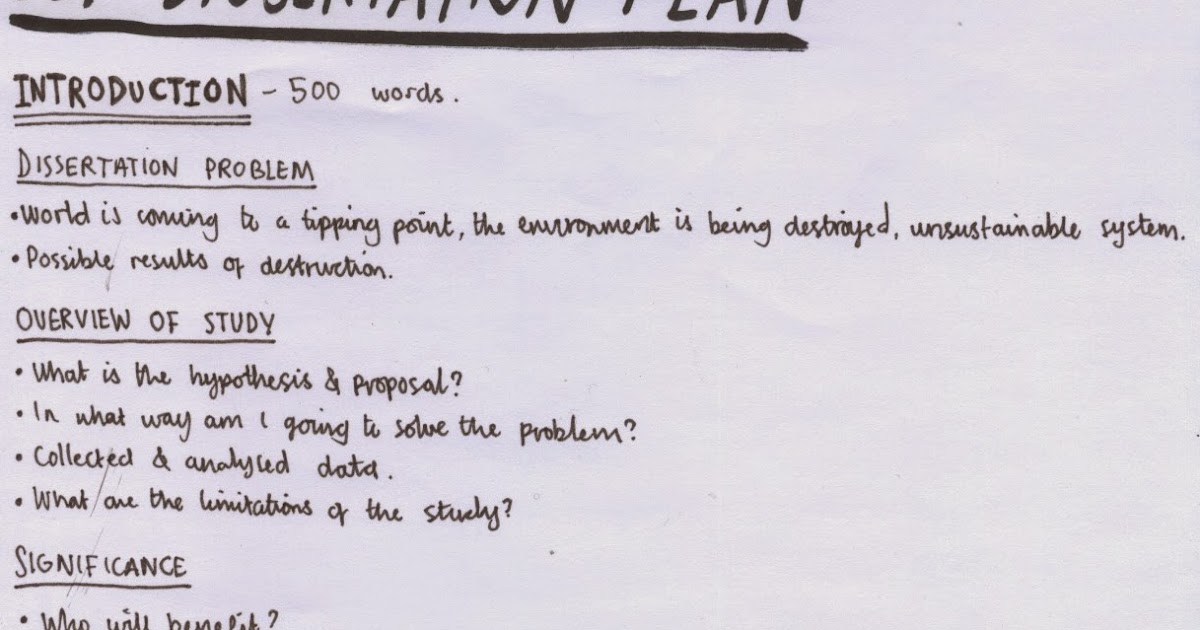 DISSERTATION PLAN
INTRODUCTION - 500 words.
DISSERTATION PROBLEM
• World is coming to a tipping point, the environment is being destroyed, unsustainable system.
• Possible results of destruction.
OVERVIEW OF STUDY
• What is the hypothesis & proposal?
• In what way am I going to solve the problem?
• Collected & analysed data.
• What are the limitations of the study?
SIGNIFICANCE
• Who will benefit?